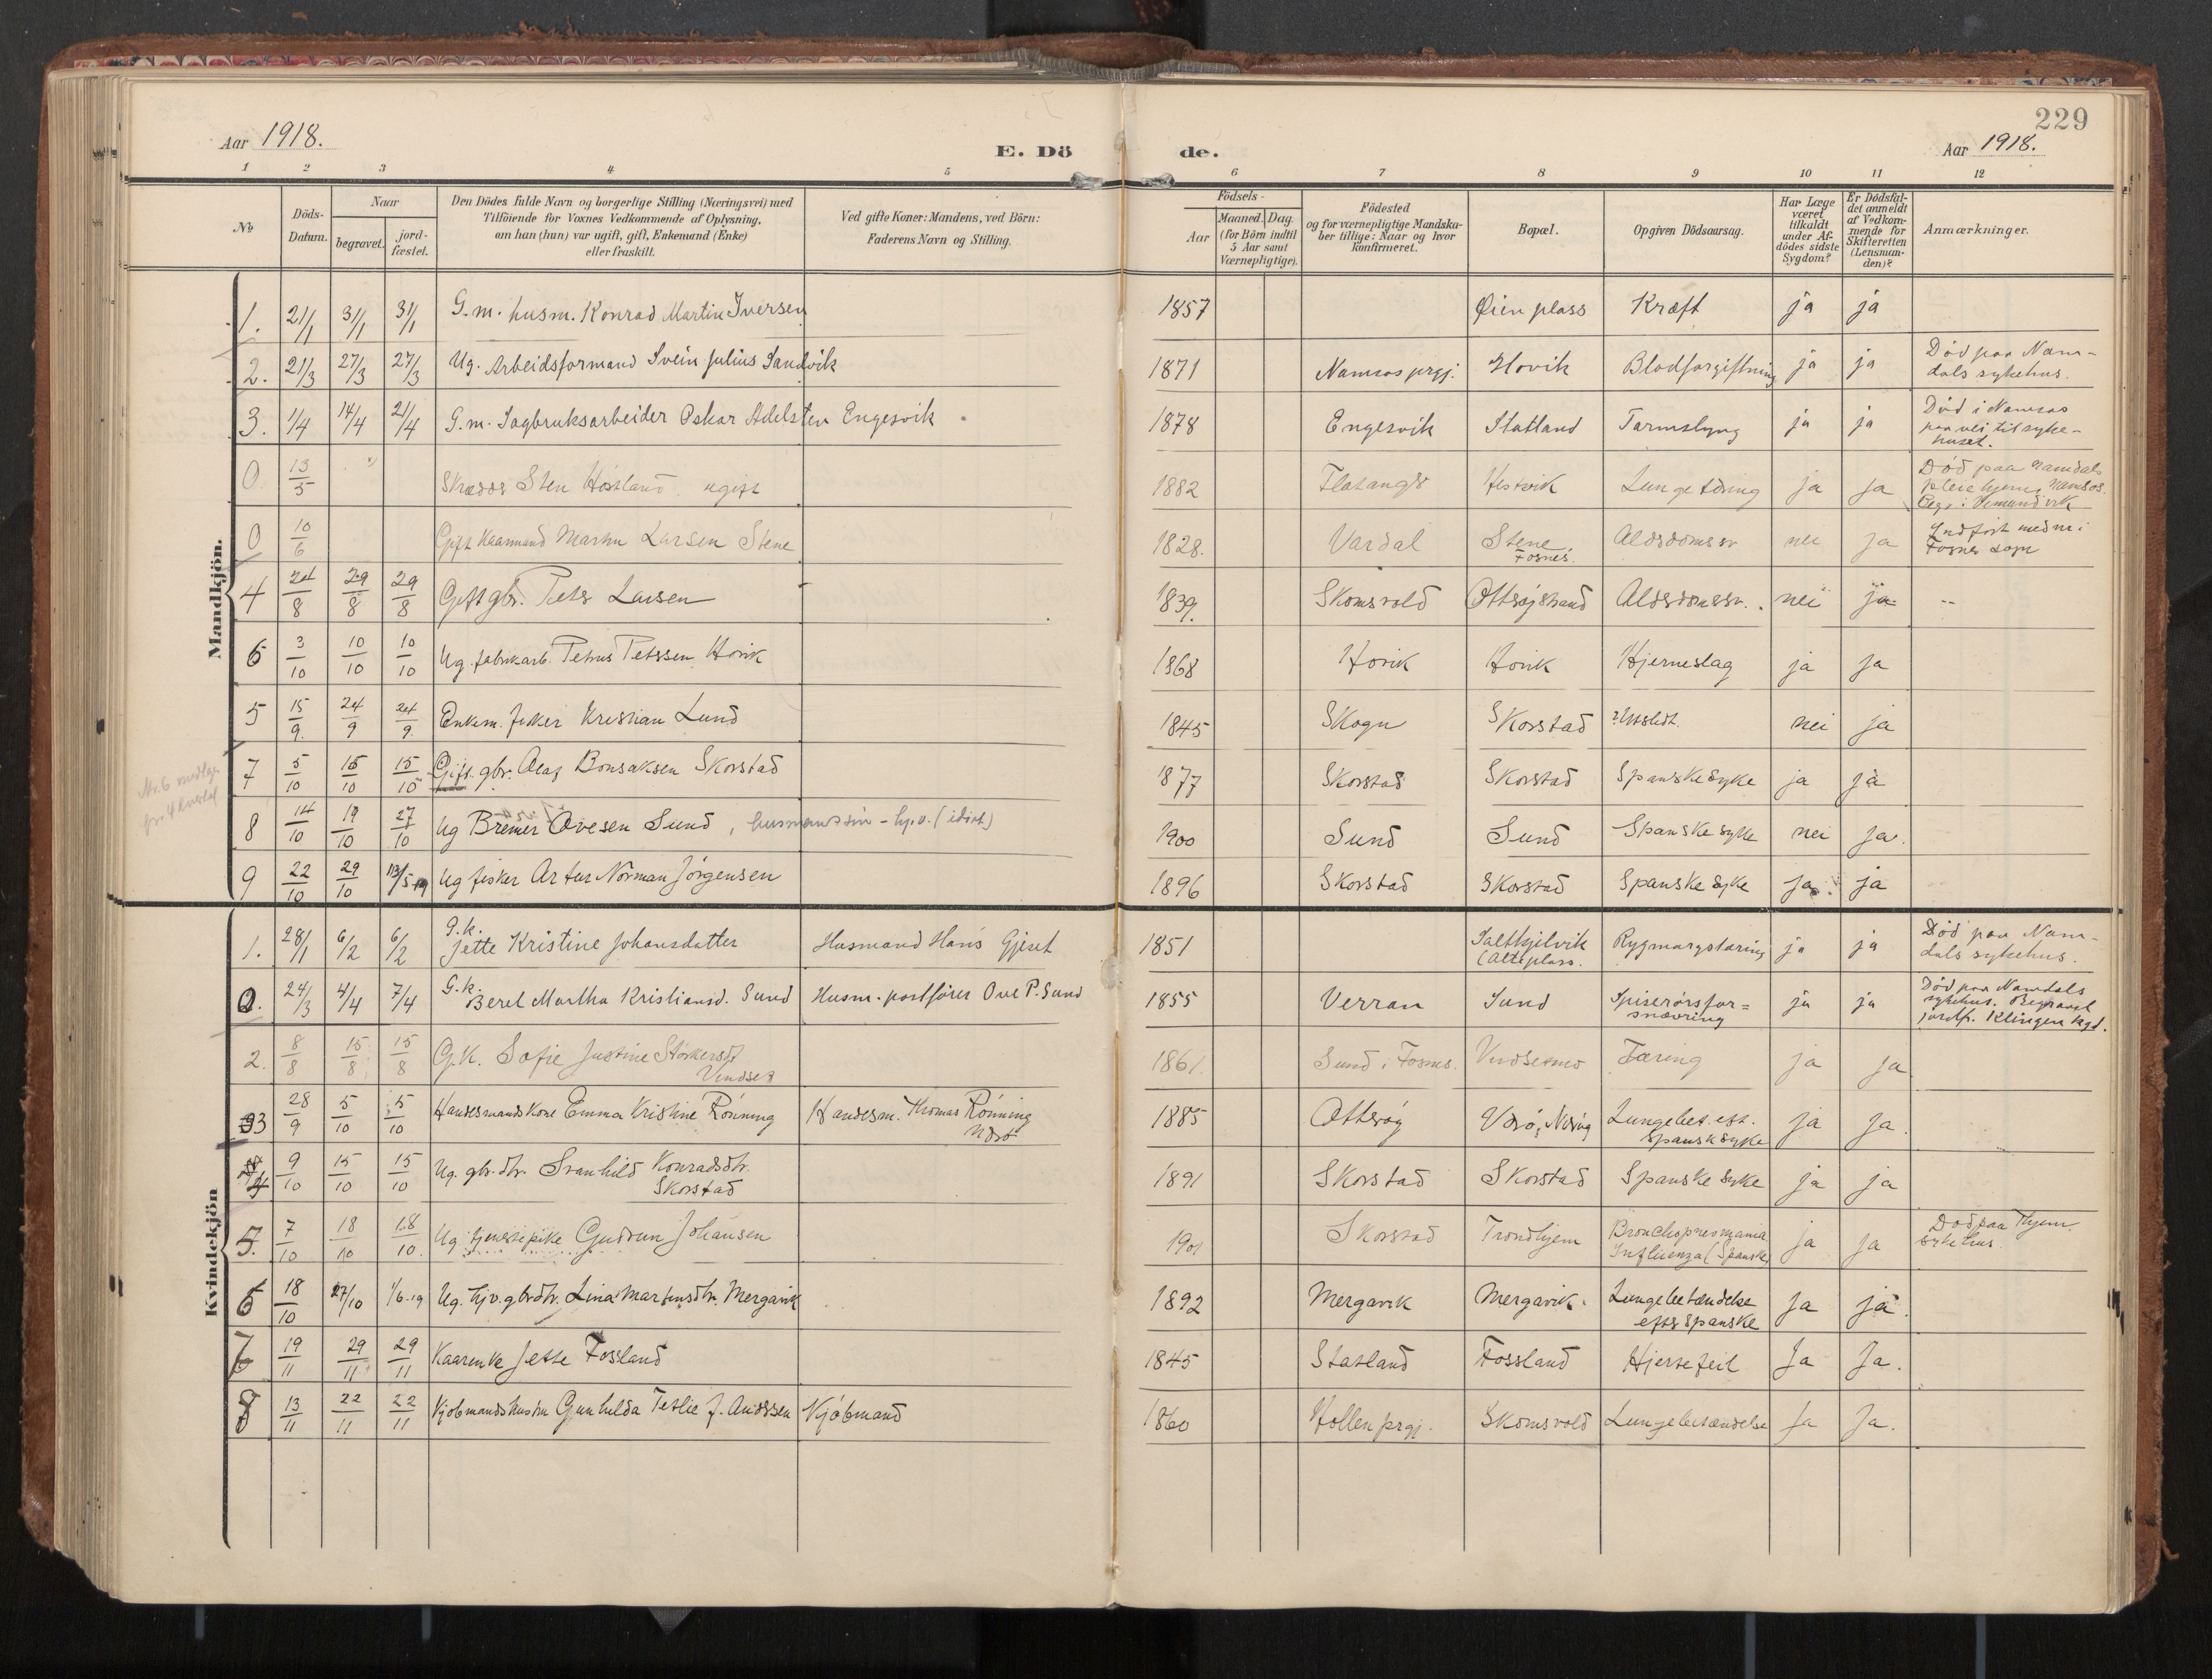 229
Aar 1918.
E. Dö de.
Aar 1918.
1 2 3 4 5 6 7 8 9 10 11 12
No
Döds-Datum.
Naar
begravet.
jord-fæstet.
Den Dödes fulde Navn og borgerlige Stilling (Næringsvei) med
Tilföiende for Voxnes Vedkommende af Oplysning,
om han (hun) var ugift, gift, Enkemand (Enke)
eller fraskilt.
Ved gifte Koner: Mandens, ved Börn:
Faderens Navn og Stilling.
Födsels-
Aar
Maaned. Dag.
(for Börn indtil
5 Aar samt
Værnepligtige).
Födested
og for værnepligtige Mandska-
ber tillige: Naar og hvor
konfirmeret.
Bopæl.
Opgiven Dödsaarsag.
Har Læge
været
tilkaldt
under Af-
dödes sidste
Sygdom?
Er Dödsfal-
det anmeldt
af Vedkom-
mende for
Skifteretten
(Lensman-
den)?
Anmærkninger.
Mandkjön.
1. 21/1 31/1 31/1 G. m. husm. Konrad Martin Iversen 1857 Øien plass Kræft ja ja
2. 21/3 27/3 27/3 Ug. Arbeidsformand Svein Julius Sandvik 1871 Namsos prgj. Hovik Blodforgiftning ja ja Död paa Nam-
dals sykehus.
3. 1/4 14/4 21/4 G. m. Sagbruksarbeider Oskar Adelsten Engesvik 1878 Engesvik Statland Tarmslyng ja ja Död i Namsos
paa vei til syke-
huset.
0. 13/5 Skrædder Sten Høstland ugift 1882 Flatanger Hestvik Lungetæring ja ja Död paa Namdals
pleiehjem, Namsos.
0 10/6 Gift Kaarmand Martin Larsen Stene 1828. Vardal Stene
Fosnes. Aldsdomssv nei ja Indfört med nr i
Fosnes sogn
4 24/8 29/8 29/8 Gift gbr. Peter Larsen 1839. Skomsvold Otterøjstrand Aldsdomssv. nei ja
6 3/10 10/10 10/10 Ug. fabrikarb. Petrus Peterssen Hovik 1868 Hovik Hovik Hjerneslag ja ja
5 15/9. 24/9 24/9 Enkem. fisker Kristian Lund 1845 Skogn Skorstad nei ja
7 5/10 15/10 15/10 Gift. gbr. Olaf Bonsaksen Skorstad 1877 Skorstad Skorstad Spanske syke ja ja
8 14/10 19/10 27/10 Ug Bremer Ovesen Sund, husmandssön - hj.v. (idiot) 1900 Sund Sund Spanske syke nei ja.
9 22/10 29/10 13/5-19 Ug fisker Artur Norman Jörgensen 1896 Skorstad Skorstad Spanske syke ja. ja
Kvindekjön
1. 28/1 6/2 6/2 G. k.
Jette Kristine Johansdatter Husmand Hans Gjeset 1851 Saltkjelvik
(Alte plass. Rygmargstæring ja ja Död paa Nam-
dals sykehus.
0. 24/3 4/4 7/4 G. k.
Beret Martha Kristiansd. Sund Husm. postförer Ove P. Sund 1855 Verran Sund Spiserörsfor=
snævring ja ja Död paa Namdals
sykehus. Begravet
jordf. Klingen kgd.
2. 8/8 15/8 15/8 G. K. Sofie Justine Störkersdt
Vindset 1861. Sund i Fosnes. Vindsetmo Tæring ja ja
3 28/9 5/10 5/10 Handesmands Kone Emma Kristine Rönning Handesm. Thomas Rönning 1885 Otteröy Lungebet. eft.
Spansk syke ja ja.
4 9/10 15/10 15/10 Ug. gbr. dtr. Svanhild Konradsdtr.
Skorstad 1891 Skorstad Skorstad Spanske syke ja ja
5. 7/10 18/10 18/10. Ug. tjenestepike Gudrun Johansen 1901 Skorstad Trondhjem Bronchopneomania
Influenza (Spanske) ja ja Död paa Thjem
sykehus.
6 18/10 27/10 1/6-19 Ug. hjv. gbrdtr. Lina Martinsdtr. Mergavik 1892 Mergavik Mergavik. Lungebetændelse
efter spanske ja ja.
7 19/11 29/11 29/11 Kaarenke Jette Fosland 1845 Statland Fossland Hjertefeil Ja Ja.
8 13/11 22/11 22/11 Kjöbmandshustru Gunhilda Tetlie f. Anderssen Kjöbmand 1860 Kollen prgj. Skomsvold Lungebetændelse Ja Ja.